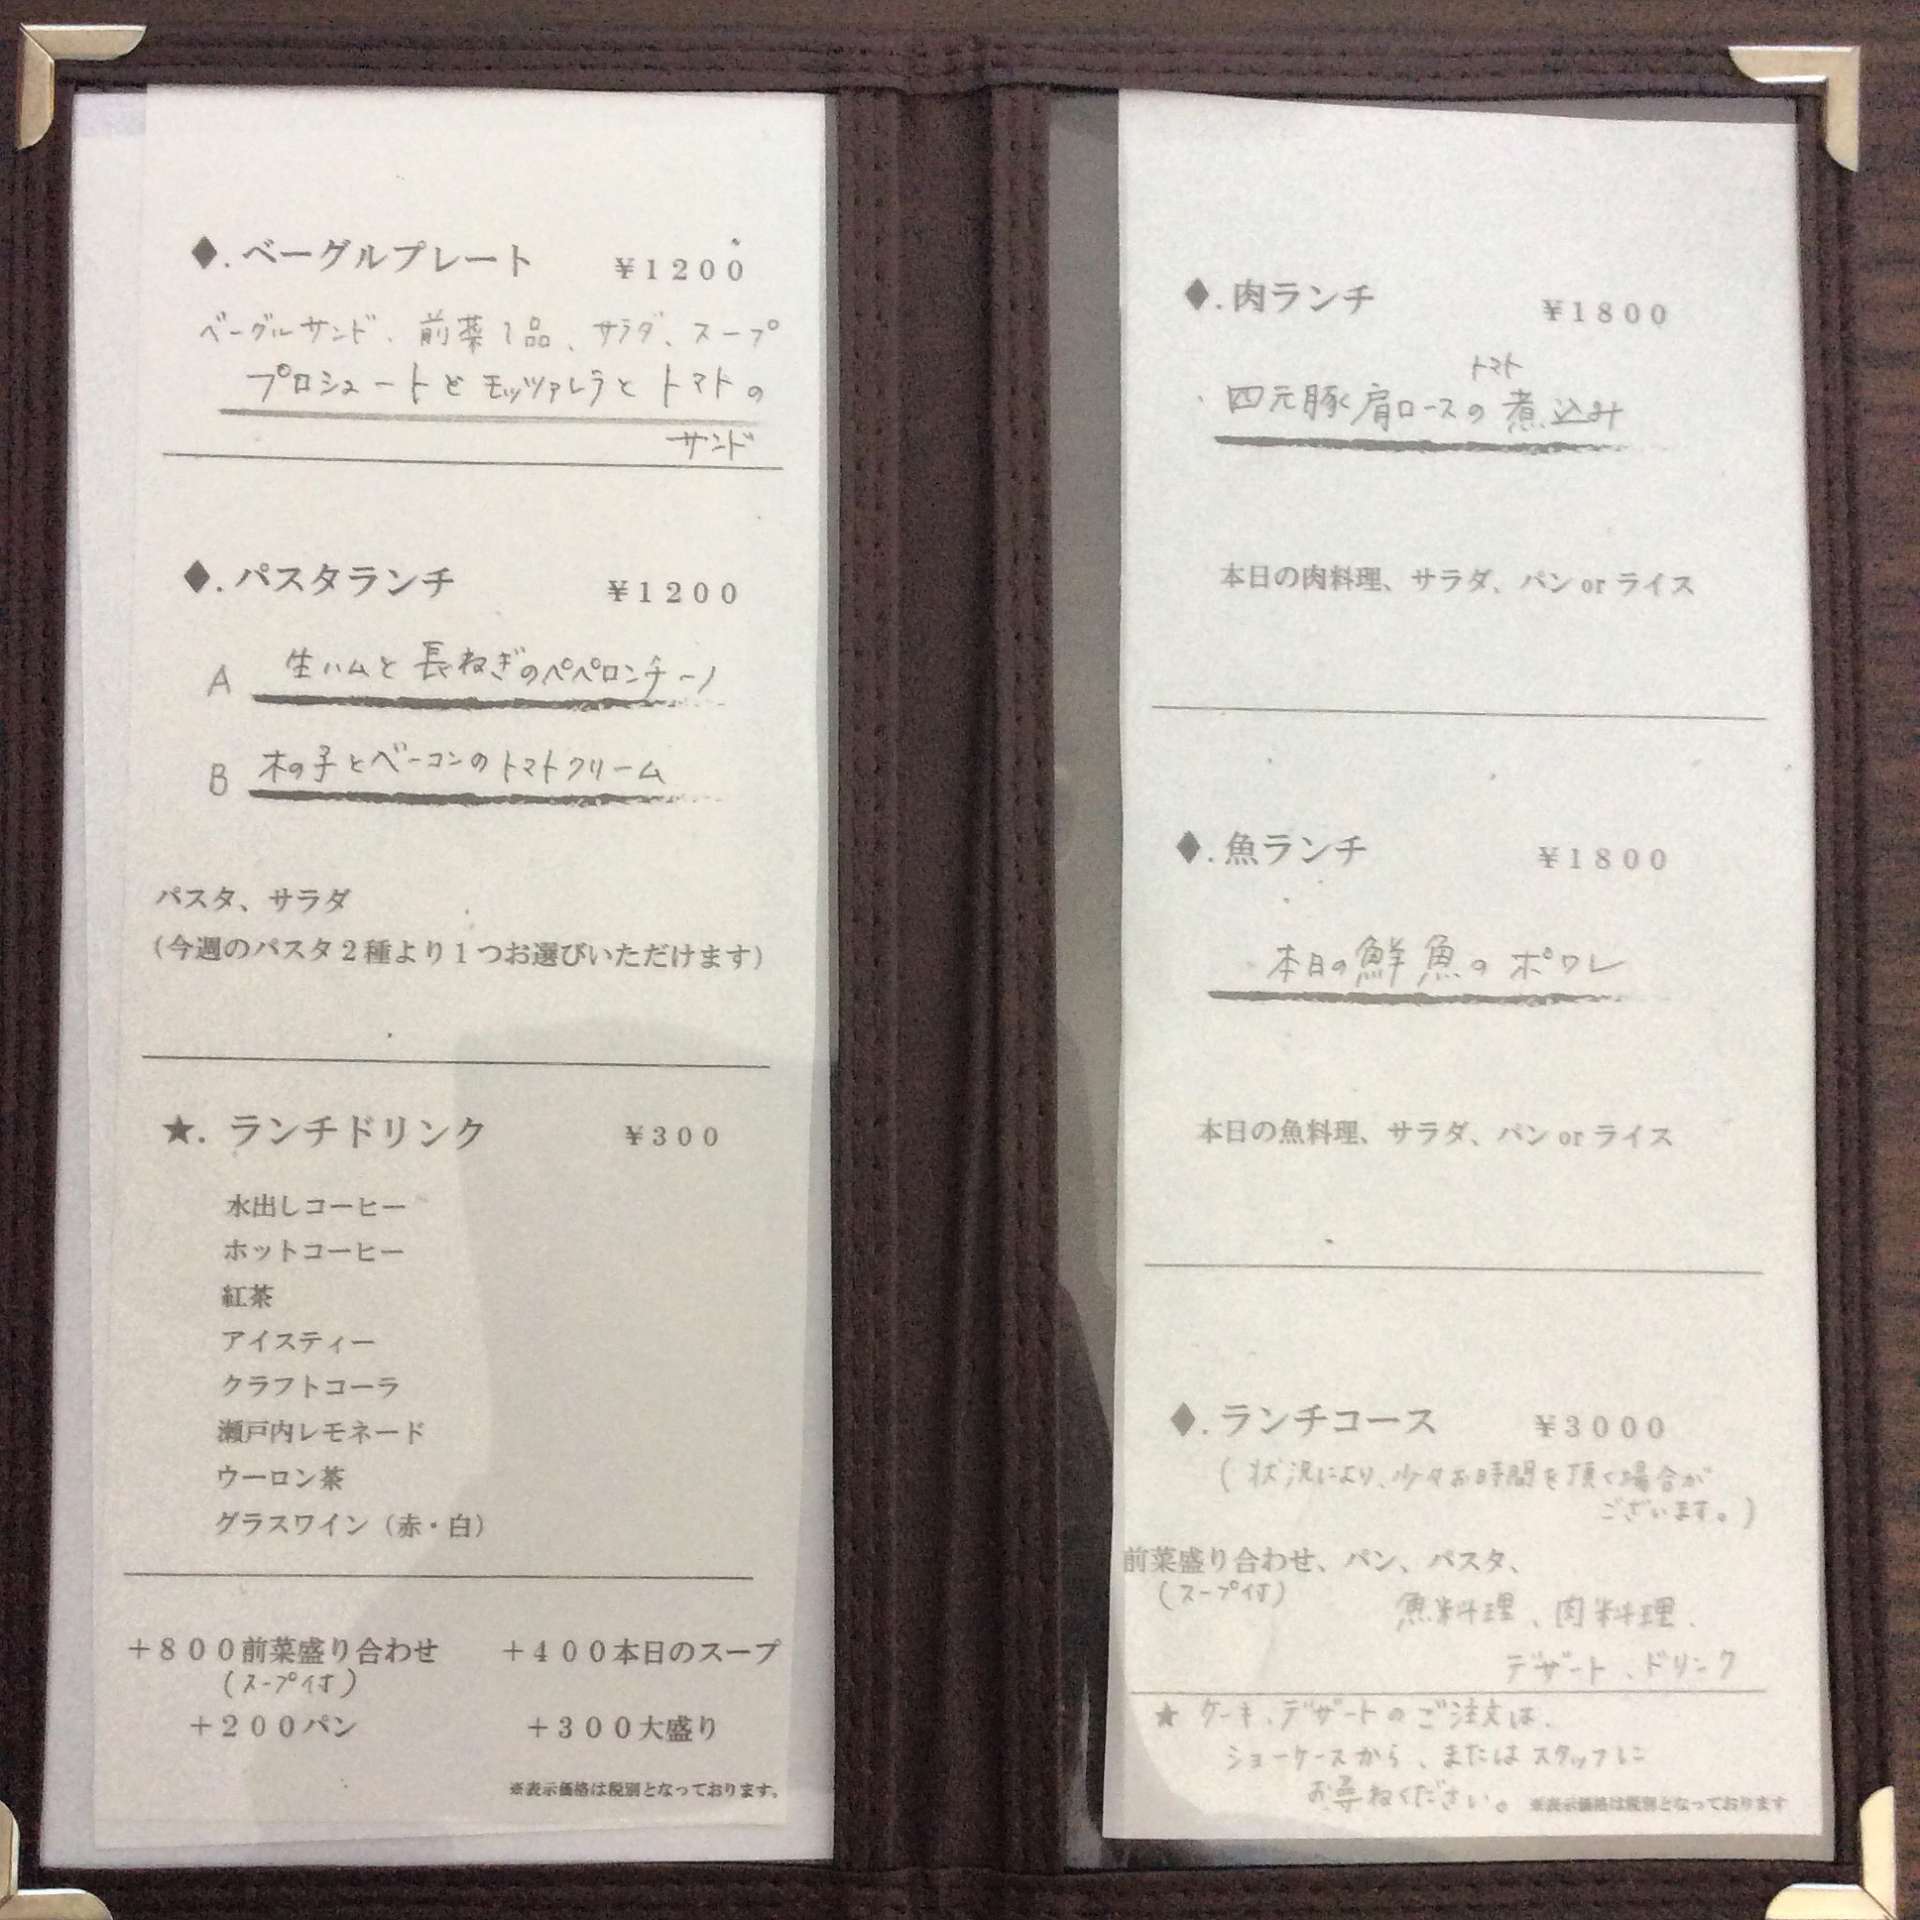 ◆.ベーグルプレート ¥1200
ベーグルサンド、前菜1品、サラダ、スープ
プロシュートとモッツァレラとトマトの
サンド
◆.パスタランチ ¥1200
A 生ハムと長ねぎのペペロンチーノ
B 木の子とベーコンのトマトクリーム
パスタ、サラダ
（今週のパスタ２種より１つお選びいただけます）
★. ランチドリンク ¥300
水出しコーヒー
ホットコーヒー
紅茶
アイスティー
クラフトコーラ
瀬戸内レモネード
ウーロン茶
グラスワイン（赤・白）
＋８００前菜盛り合わせ ＋４００本日のスープ
(スープ付)
＋２００パン ＋３００大盛り
※表示価格は税別となっております。
◆.肉ランチ ¥1800
トマト
四元豚肩ロースの煮込み
本日の肉料理、サラダ、パン or ライス
◆.魚ランチ ¥1800
本日の鮮魚のポワレ
本日の魚料理、サラダ、パン or ライス
◆.ランチコース ¥3000
(状況により、少々お時間を頂く場合が
ございます。)
前菜盛り合わせ、パン、パスタ、
(スープ付)
魚料理、肉料理、
デザート、ドリンク
★ ケーキ、デザートのご注文は、
ショーケースから、またはスタッフに
お尋ねください。 ※表示価格は税別となっております